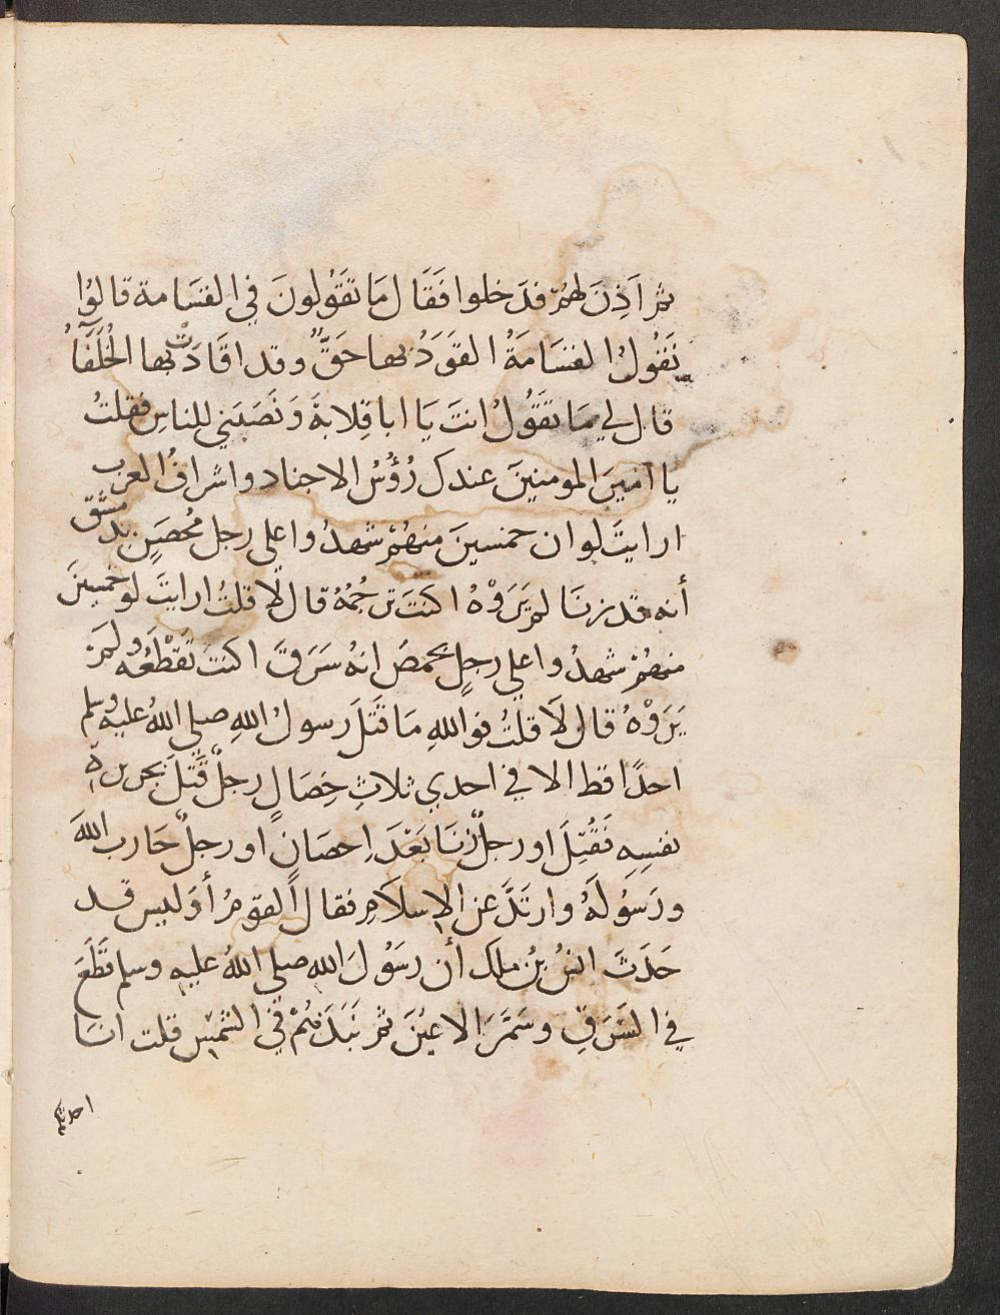 ثم اَذِنَ لهُمْ فدَخلوا فَقَال مَا تَقُولونَ فِي القسَامة قالوُا
نَقُولُ القسَامَةُ القوَدُ بها حَقٌّ وقد اقَادَتْ بها الخُلَفَاُ
قال لي مَا تَقُولُ انتَ يَا ابا قِلابةَ وَنَصَبَني للناسِ فقلتُ
يا اَميرَ المومنينَ عندكَ رُؤُسُ الاجناد واشرافُ العرب
ارايتَ لو ان خمسينَ منهُمْ شهدُوا علي رجل مُحصَنٍ بدمشق
أنه قد زنَا لم يَرَوْهُ اكنتَ ترجُمُهُ قال لَا قلتُ ارايتَ لو خمسينَ
منهُمْ شهدُوا علي رجلٍ بحمصَ انهُ سَرَقَ اكنتَ تَقْطَعُهُ ولم
يَرَوْهُ قال لَا قلتُ فوَاللهِ مَا قَتَلَ رسولُ اللهِ صلي اللهُ عليه وسلم
احدًا قط الا في احدي ثلاثِ خِصَالٍ رجلٌ قَتَلَ بجريرةِ
نفسِهِ فَقُتِلَ او رجلٌ زنَا بَعْدَ اِحصَانٍ او رجلٌ حَارب اللهَ
ورَسُولَهُ وارتَدَّ عن الاِسلَامِ فقال القومُ أوَليس قد
حَدَثَ انسُ بنُ ملك أن رسَوُلَ الله صلي اللهُ عليهِ وسلم قَطَعَ
فِي السَرَقِ وسَمَّرَ الاعيُنَ ثم نَبَذَهُمْ فِي الشمْسِ قلت انَا
احدثكم